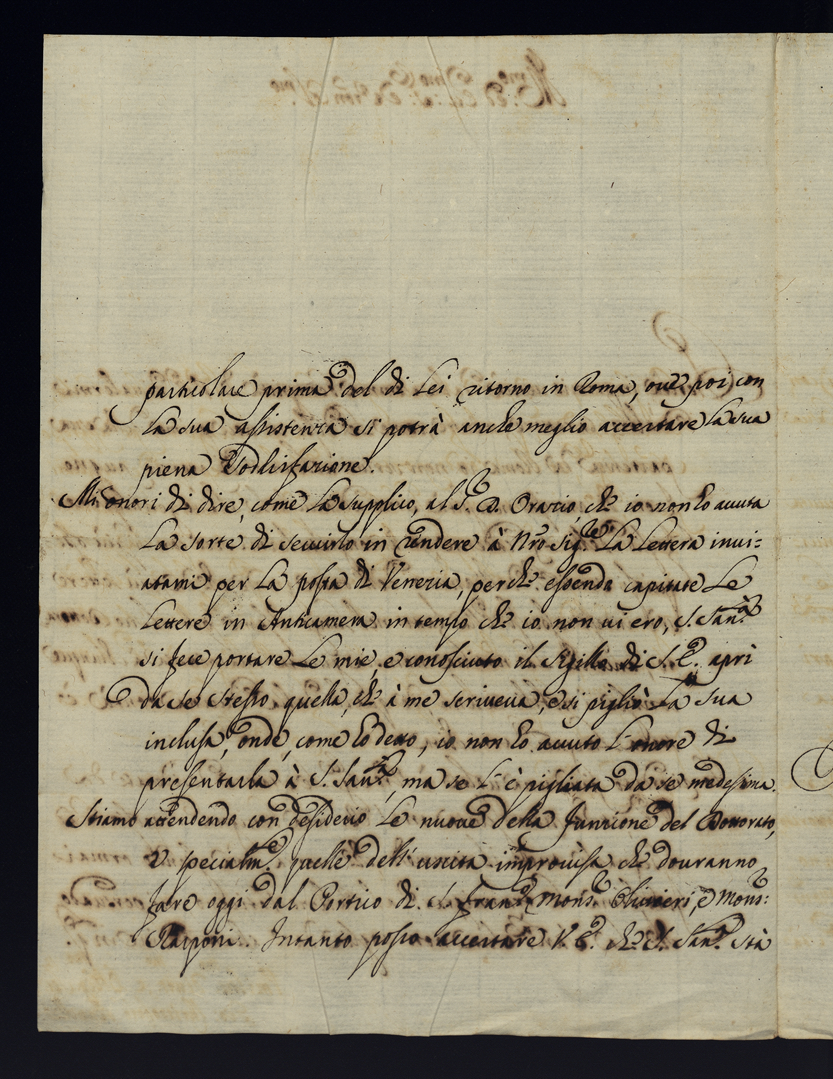 particolare prima del di Lei ritorno in Roma, ove poi con
la sua assistenza si potrà anche meglio accertare la sua
piena sodisfazione.
Mi onori di dire, come la supplico, al S.r D. Orazio, che io non hò avuta
la sorte di servirlo in rendere à Nro Sig.re la lettera invi:
atami per la posta di Venezia, perche essendo capitate le
lettere in Anticamera in tempo che io non vi ero, S. San.tà
si fece portare le mie, e conosciuto il Sigillo di S. E. aprì
da se stesso quella, che à me scriveva, e si pigliò la sua
inclusa, onde, come hò detto, io non hò avuto l'onore di
presentarla à S. San.tà, ma se l'è pigliata da se medesima.
Stiamo attendendo con desiderio le nuove della funzione del Dottorato,
e specialm.te quelle dell'uscita improvisa che dovranno
fare oggi dal Portico di S. Fran.co Mons.r Olivieri, e Mons:
Rasponi. Intanto posso accertare V. E. che S. San.tà stà